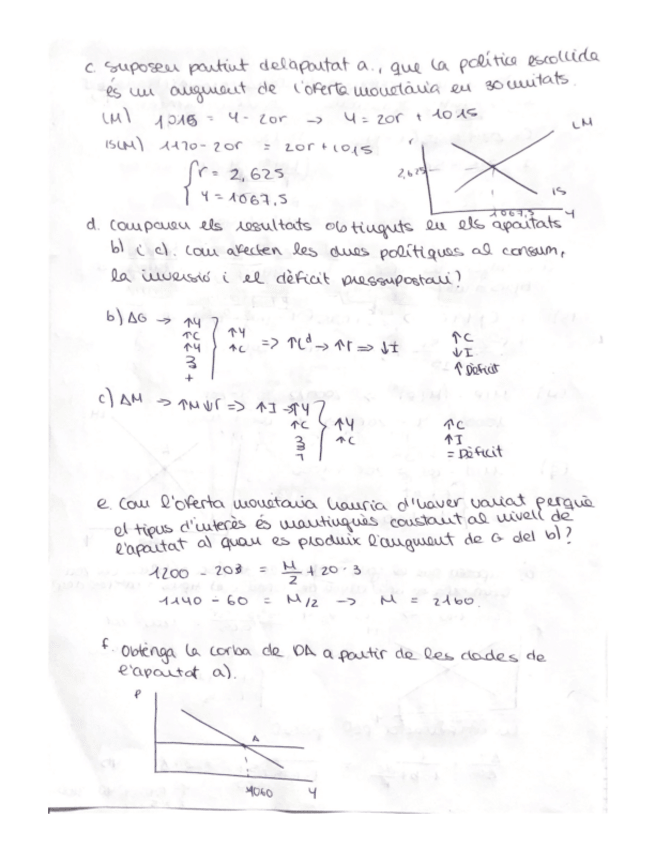 c. Suposeu partint de l'apartat a., que la política escollida
és un augment de l'oferta monetària en 30 unitats.
LM) 1015 = Y - 20r → Y = 20r + 1015
IS(LM) 1170 - 20r = 20r + 1015
r = 2,625
Y = 1067,5
r
LM
2,625
IS
1067,5
Y
d. Compareu els resultats obtinguts en els apartats
b) i c). Com afecten les dues polítiques al consum,
la inversió i el dèficit pressupostari?
b) ΔG → ↑Y
↑C
↑Y
↑Y
↑C
=> ↑Lᵈ → ↑r => ↓I
↑C
↓I
↑ Dèficit
c) ΔM → ↑M ↓r => ↑I → ↑Y
↑C
↑Y
↑C
↑C
↑I
= Dèficit
e. Com l'oferta monetària hauria d'haver variat perquè
el tipus d'interès és mantingués constant al nivell de
l'apartat a) quan es produix l'augment de G del b)?
1200 - 203 = M/2 + 20·3
1140 - 60 = M/2 → M = 2160.
f. Obtenga la corba de DA a partir de les dades de
l'apartat a).
P
A
1060
Y